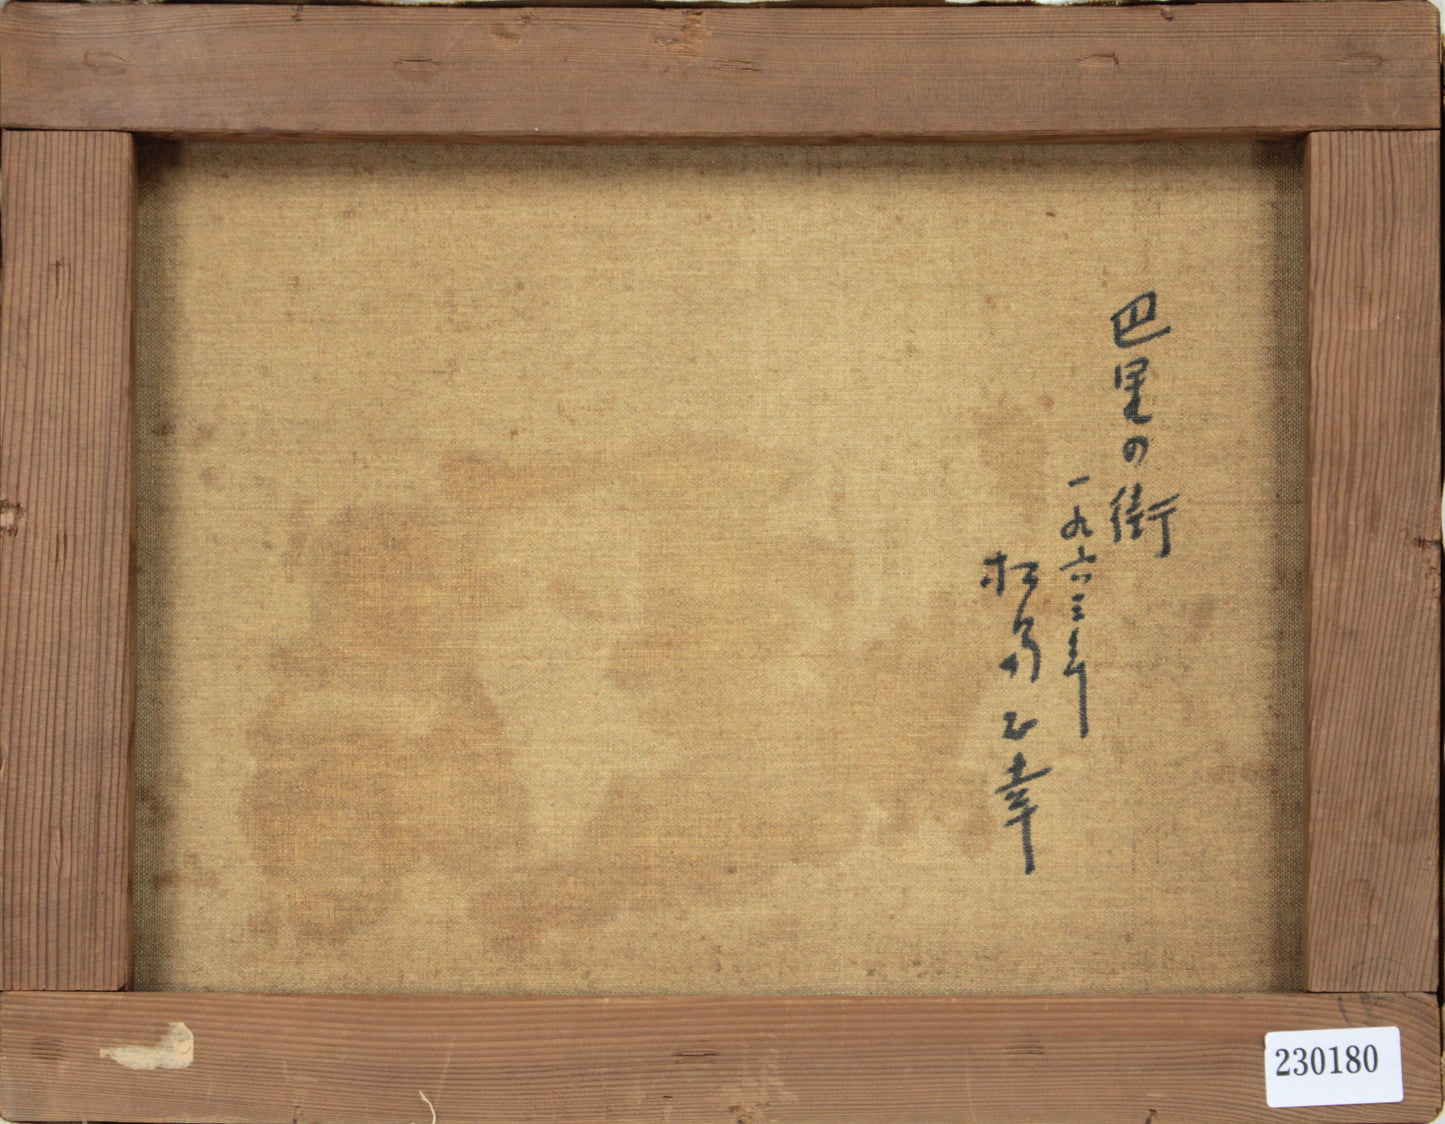 巴里の街
一九六三年
松島正幸
230180